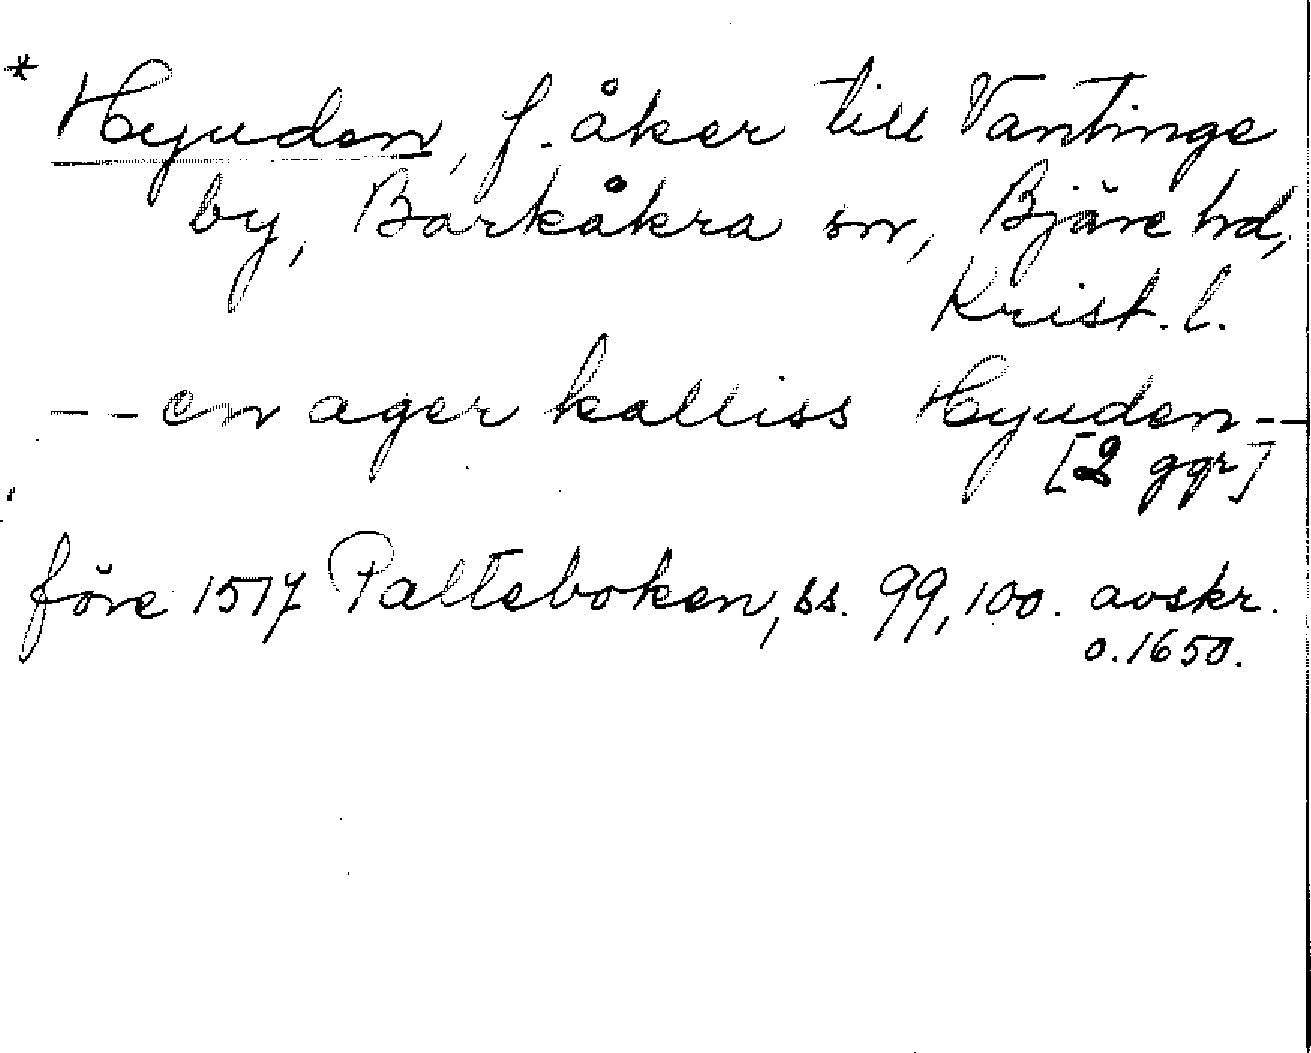 * Hyuden, f. åker till Vantinge
by, Barkåkra sn, Bjäre hd,
Krist. l.
-- en ager kalliss Hyuden --
[2 ggr]
före 1517 Palteboken, ss. 99, 100. avskr.
o. 1650.